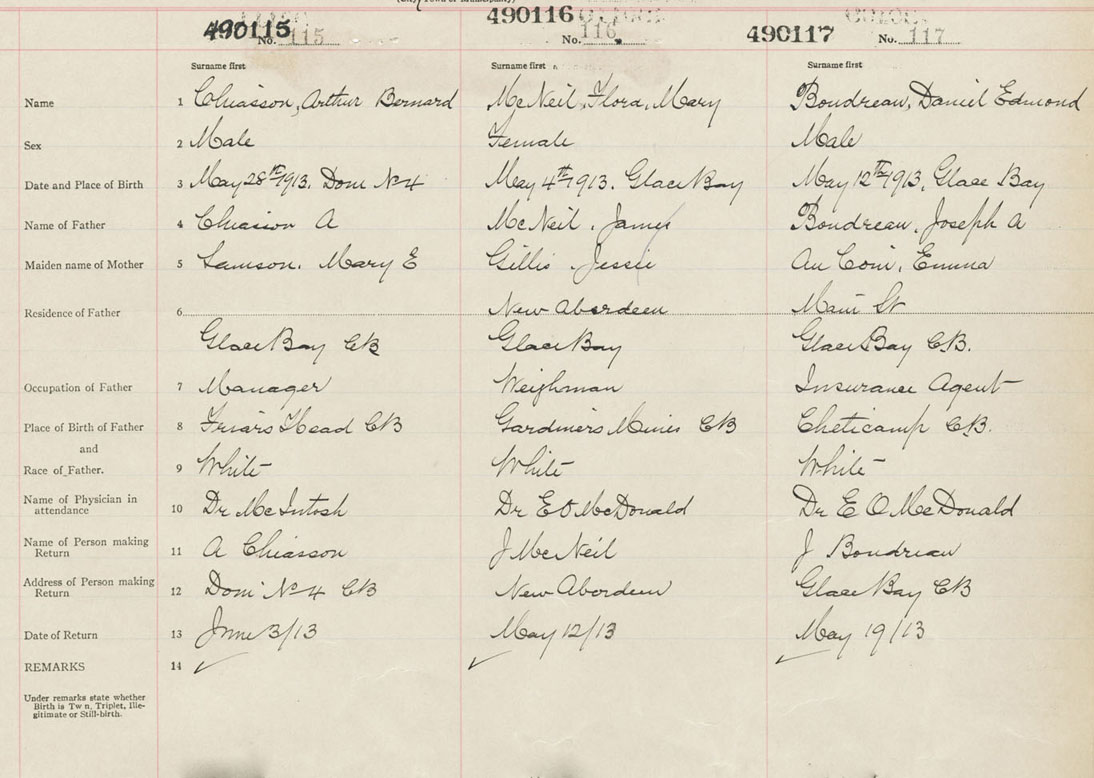 490115 No. 115
490116 No. 116
490117 No. 117
Surname first Surname first Surname first
Name 1 Chiasson, Arthur Bernard McNeil, Flora, Mary Boudreau, Daniel Edmond
Sex 2 Male Female Male
Date and Place of Birth 3 May 28th 1913. Dom No 4 May 4th 1913. Glace Bay May 12th 1913, Glace Bay
Name of Father 4 Chiasson A McNeil, James Boudreau, Joseph A
Maiden name of Mother 5 Samson. Mary E Gillis. Jessie Au Coin, Emma
Residence of Father 6 New Aberdeen Main St
Glace Bay CB Glace Bay Glace Bay C.B.
Occupation of Father 7 Manager Weighman Insurance Agent
Place of Birth of Father 8 Friars Head CB Gardiners Mines CB Cheticamp C.B.
and
Race of Father. 9 White White White
Name of Physician in attendance 10 Dr McIntosh Dr E O McDonald Dr E O McDonald
Name of Person making Return 11 A Chiasson J McNeil J Boudreau
Address of Person making Return 12 Dom No 4 CB New Aberdeen Glace Bay CB
Date of Return 13 June 3/13 May 12/13 May 19/13
REMARKS 14
Under remarks state whether
Birth is Tw n, Triplet, Ille-
gitimate or Still-birth.